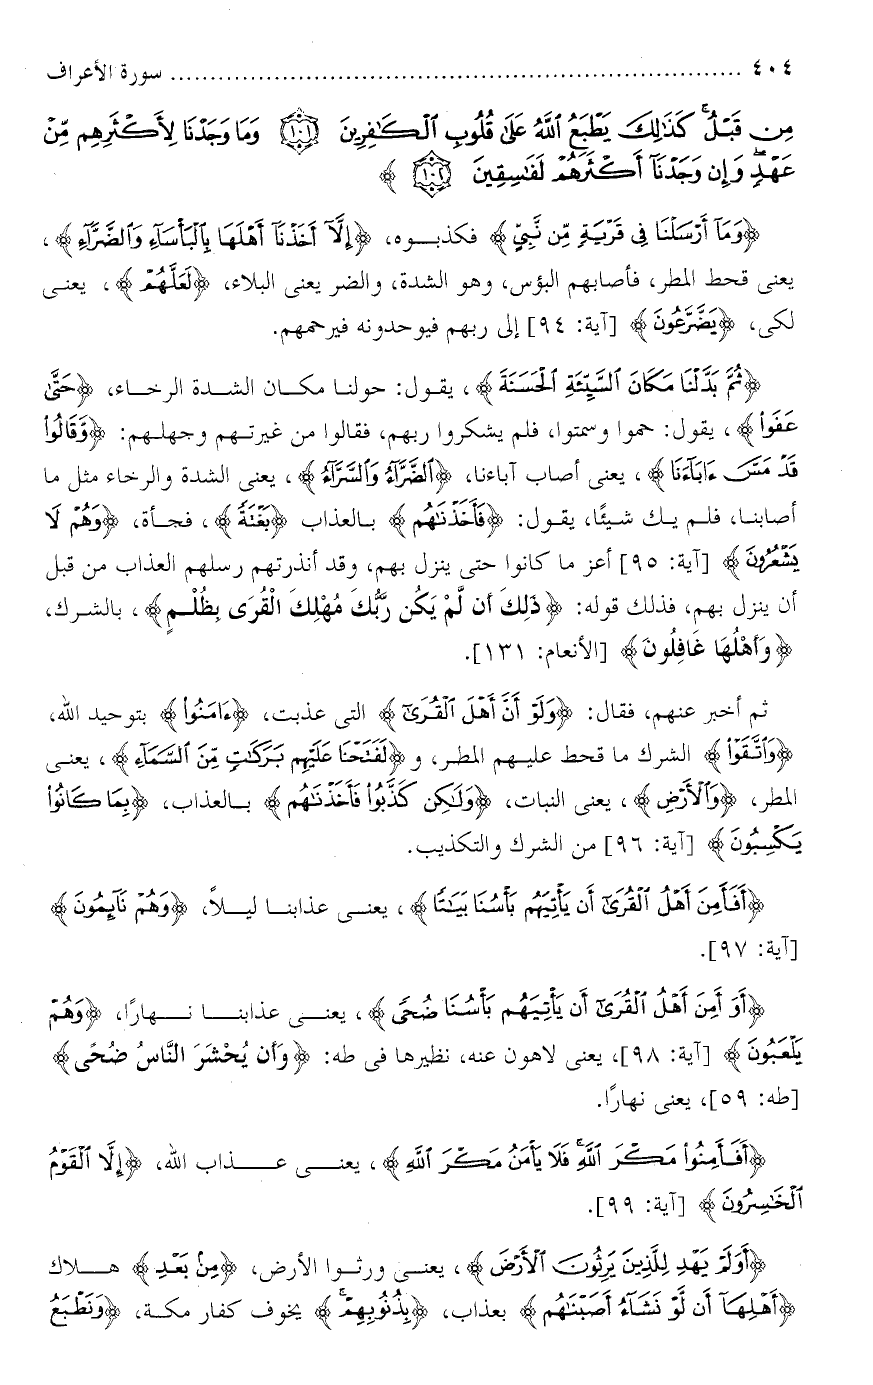 ٤٠٤ ........ سورة الأعراف
مِن قَبْلُ كَذَلِكَ يَطْبَعُ اللَّهُ عَلَى قُلُوبِ الْكَافِرِينَ ﴿١٠١﴾ وَمَا وَجَدْنَا لِأَكْثَرِهِم مِّنْ
عَهْدٍ وَإِن وَجَدْنَا أَكْثَرَهُمْ لَفَاسِقِينَ ﴿١٠٢﴾ ﴾
﴿وَمَا أَرْسَلْنَا فِي قَرْيَةٍ مِّن نَّبِيٍّ﴾ فكذبوه، ﴿إِلَّا أَخَذْنَا أَهْلَهَا بِالْبَأْسَاءِ وَالضَّرَّاءِ﴾،
يعنى قحط المطر، فأصابهم البؤس، وهو الشدة، والضر يعنى البلاء، ﴿لَعَلَّهُمْ﴾، يعنى
لكى، ﴿يَضَّرَّعُونَ﴾ [آية: ٩٤] إلى ربهم فيوحدونه فيرحمهم.
﴿ثُمَّ بَدَّلْنَا مَكَانَ السَّيِّئَةِ الْحَسَنَةَ﴾، يقول: حولنا مكان الشدة الرخاء، ﴿حَتَّى
عَفَوا﴾، يقول: حموا وسمتوا، فلم يشكروا ربهم، فقالوا من غيرتهم وجهلهم: ﴿وَّقَالُوا
قَدْ مَسَّ ءَابَاءَنَا﴾، يعنى أصاب آباءنا، ﴿الضَّرَّاءُ وَالسَّرَّاءُ﴾، يعنى الشدة والرخاء مثل ما
أصابنا، فلم يك شيئًا، يقول: ﴿فَأَخَذْنَاهُم﴾ بالعذاب ﴿بَغْتَةً﴾، فجأة، ﴿وَهُمْ لَا
يَشْعُرُونَ﴾ [آية: ٩٥] أعز ما كانوا حتى ينزل بهم، وقد أنذرتهم رسلهم العذاب من قبل
أن ينزل بهم، فذلك قوله: ﴿ذَلِكَ أَن لَّمْ يَكُن رَّبُّكَ مُهْلِكَ الْقُرَى بِظُلْمٍ﴾، بالشرك،
﴿وَأَهْلُهَا غَافِلُونَ﴾ [الأنعام: ١٣١].
ثم أخبر عنهم، فقال: ﴿وَلَوْ أَنَّ أَهْلَ الْقُرَى﴾ التى عذبت، ﴿ءَامَنُوا﴾ بتوحيد الله،
﴿وَاتَّقَوْا﴾ الشرك ما قحط عليهم المطر، و ﴿لَفَتَحْنَا عَلَيْهِم بَرَكَاتٍ مِّنَ السَّمَاءِ﴾، يعنى
المطر، ﴿وَالْأَرْضِ﴾، يعنى النبات، ﴿وَلَكِن كَذَّبُوا فَأَخَذْنَاهُم﴾ بالعذاب، ﴿بِمَا كَانُوا
يَكْسِبُونَ﴾ [آية: ٩٦] من الشرك والتكذيب.
﴿أَفَأَمِنَ أَهْلُ الْقُرَى أَن يَأْتِيَهُم بَأْسُنَا بَيَاتًا﴾، يعنى عذابنا ليلاً، ﴿وَهُمْ نَائِمُونَ﴾
[آية: ٩٧].
﴿أَوَ أَمِنَ أَهْلُ الْقُرَى أَن يَأْتِيَهُم بَأْسُنَا ضُحًى﴾، يعنى عذابنا نهارًا، ﴿وَهُمْ
يَلْعَبُونَ﴾ [آية: ٩٨]، يعنى لاهون عنه، نظيرها فى طه: ﴿وَأَن يُحْشَرَ النَّاسُ ضُحًى﴾
[طه: ٥٩]، يعنى نهارًا.
﴿أَفَأَمِنُوا مَكْرَ اللَّهِ فَلَا يَأْمَنُ مَكْرَ اللَّهِ﴾، يعنى عذاب الله، ﴿إِلَّا الْقَوْمُ
الْخَاسِرُونَ﴾ [آية: ٩٩].
﴿أَوَلَمْ يَهْدِ لِلَّذِينَ يَرِثُونَ الْأَرْضَ﴾، يعنى ورثوا الأرض، ﴿مِن بَعْدِ﴾ هلاك
﴿أَهْلِهَا أَن لَّوْ نَشَاءُ أَصَبْنَاهُم﴾ بعذاب، ﴿بِذُنُوبِهِمْ﴾ يخوف كفار مكة، ﴿وَنَطْبَعُ